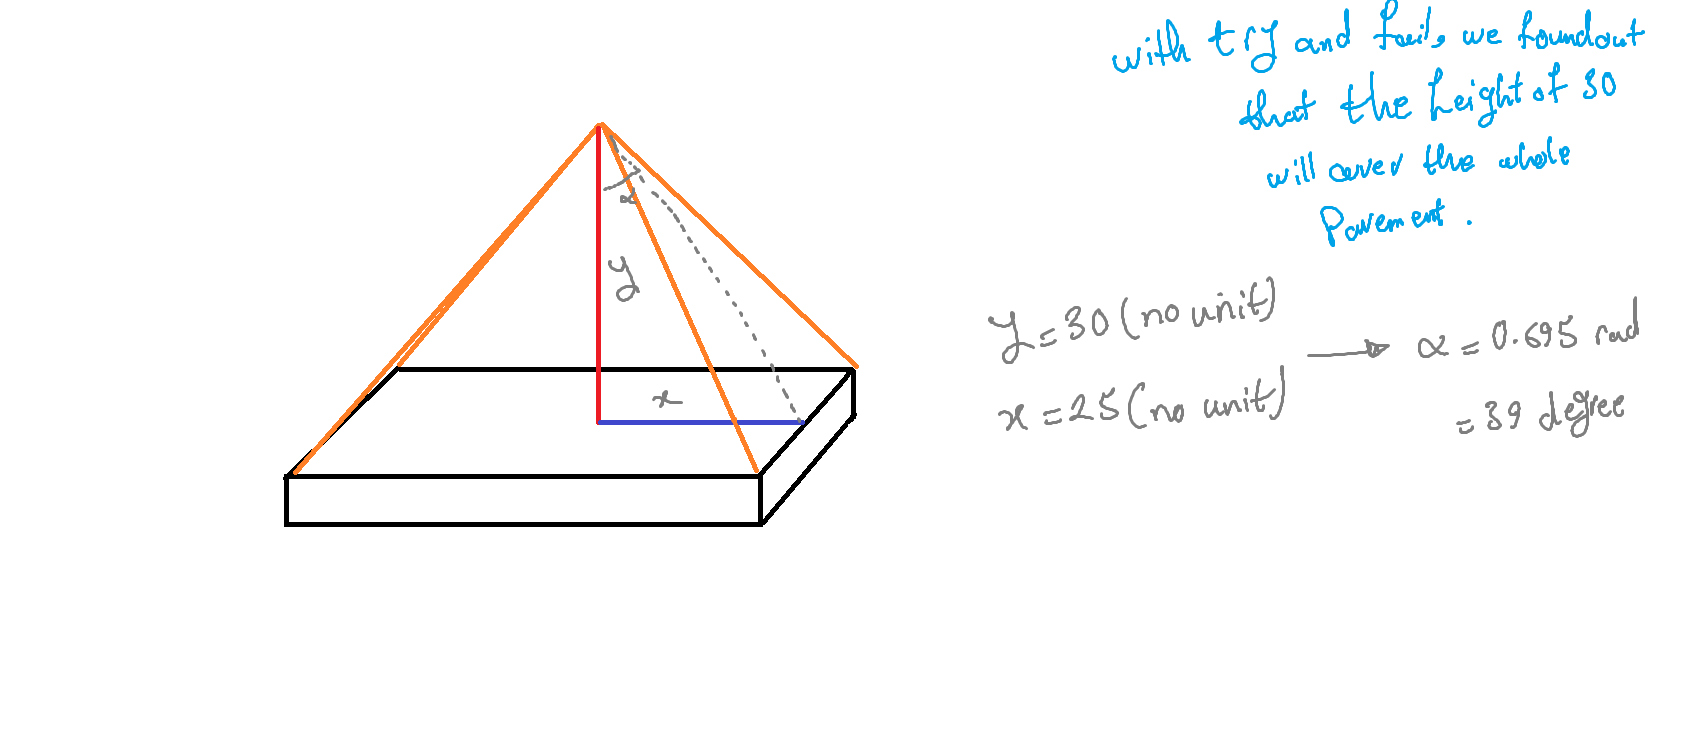 with try and fail, we foundout
that the height of 30
will cover the whole
Pavement.
α
y
x
y=30 (no unit)
x=25 (no unit)
→ α = 0.695 rad
= 39 degree